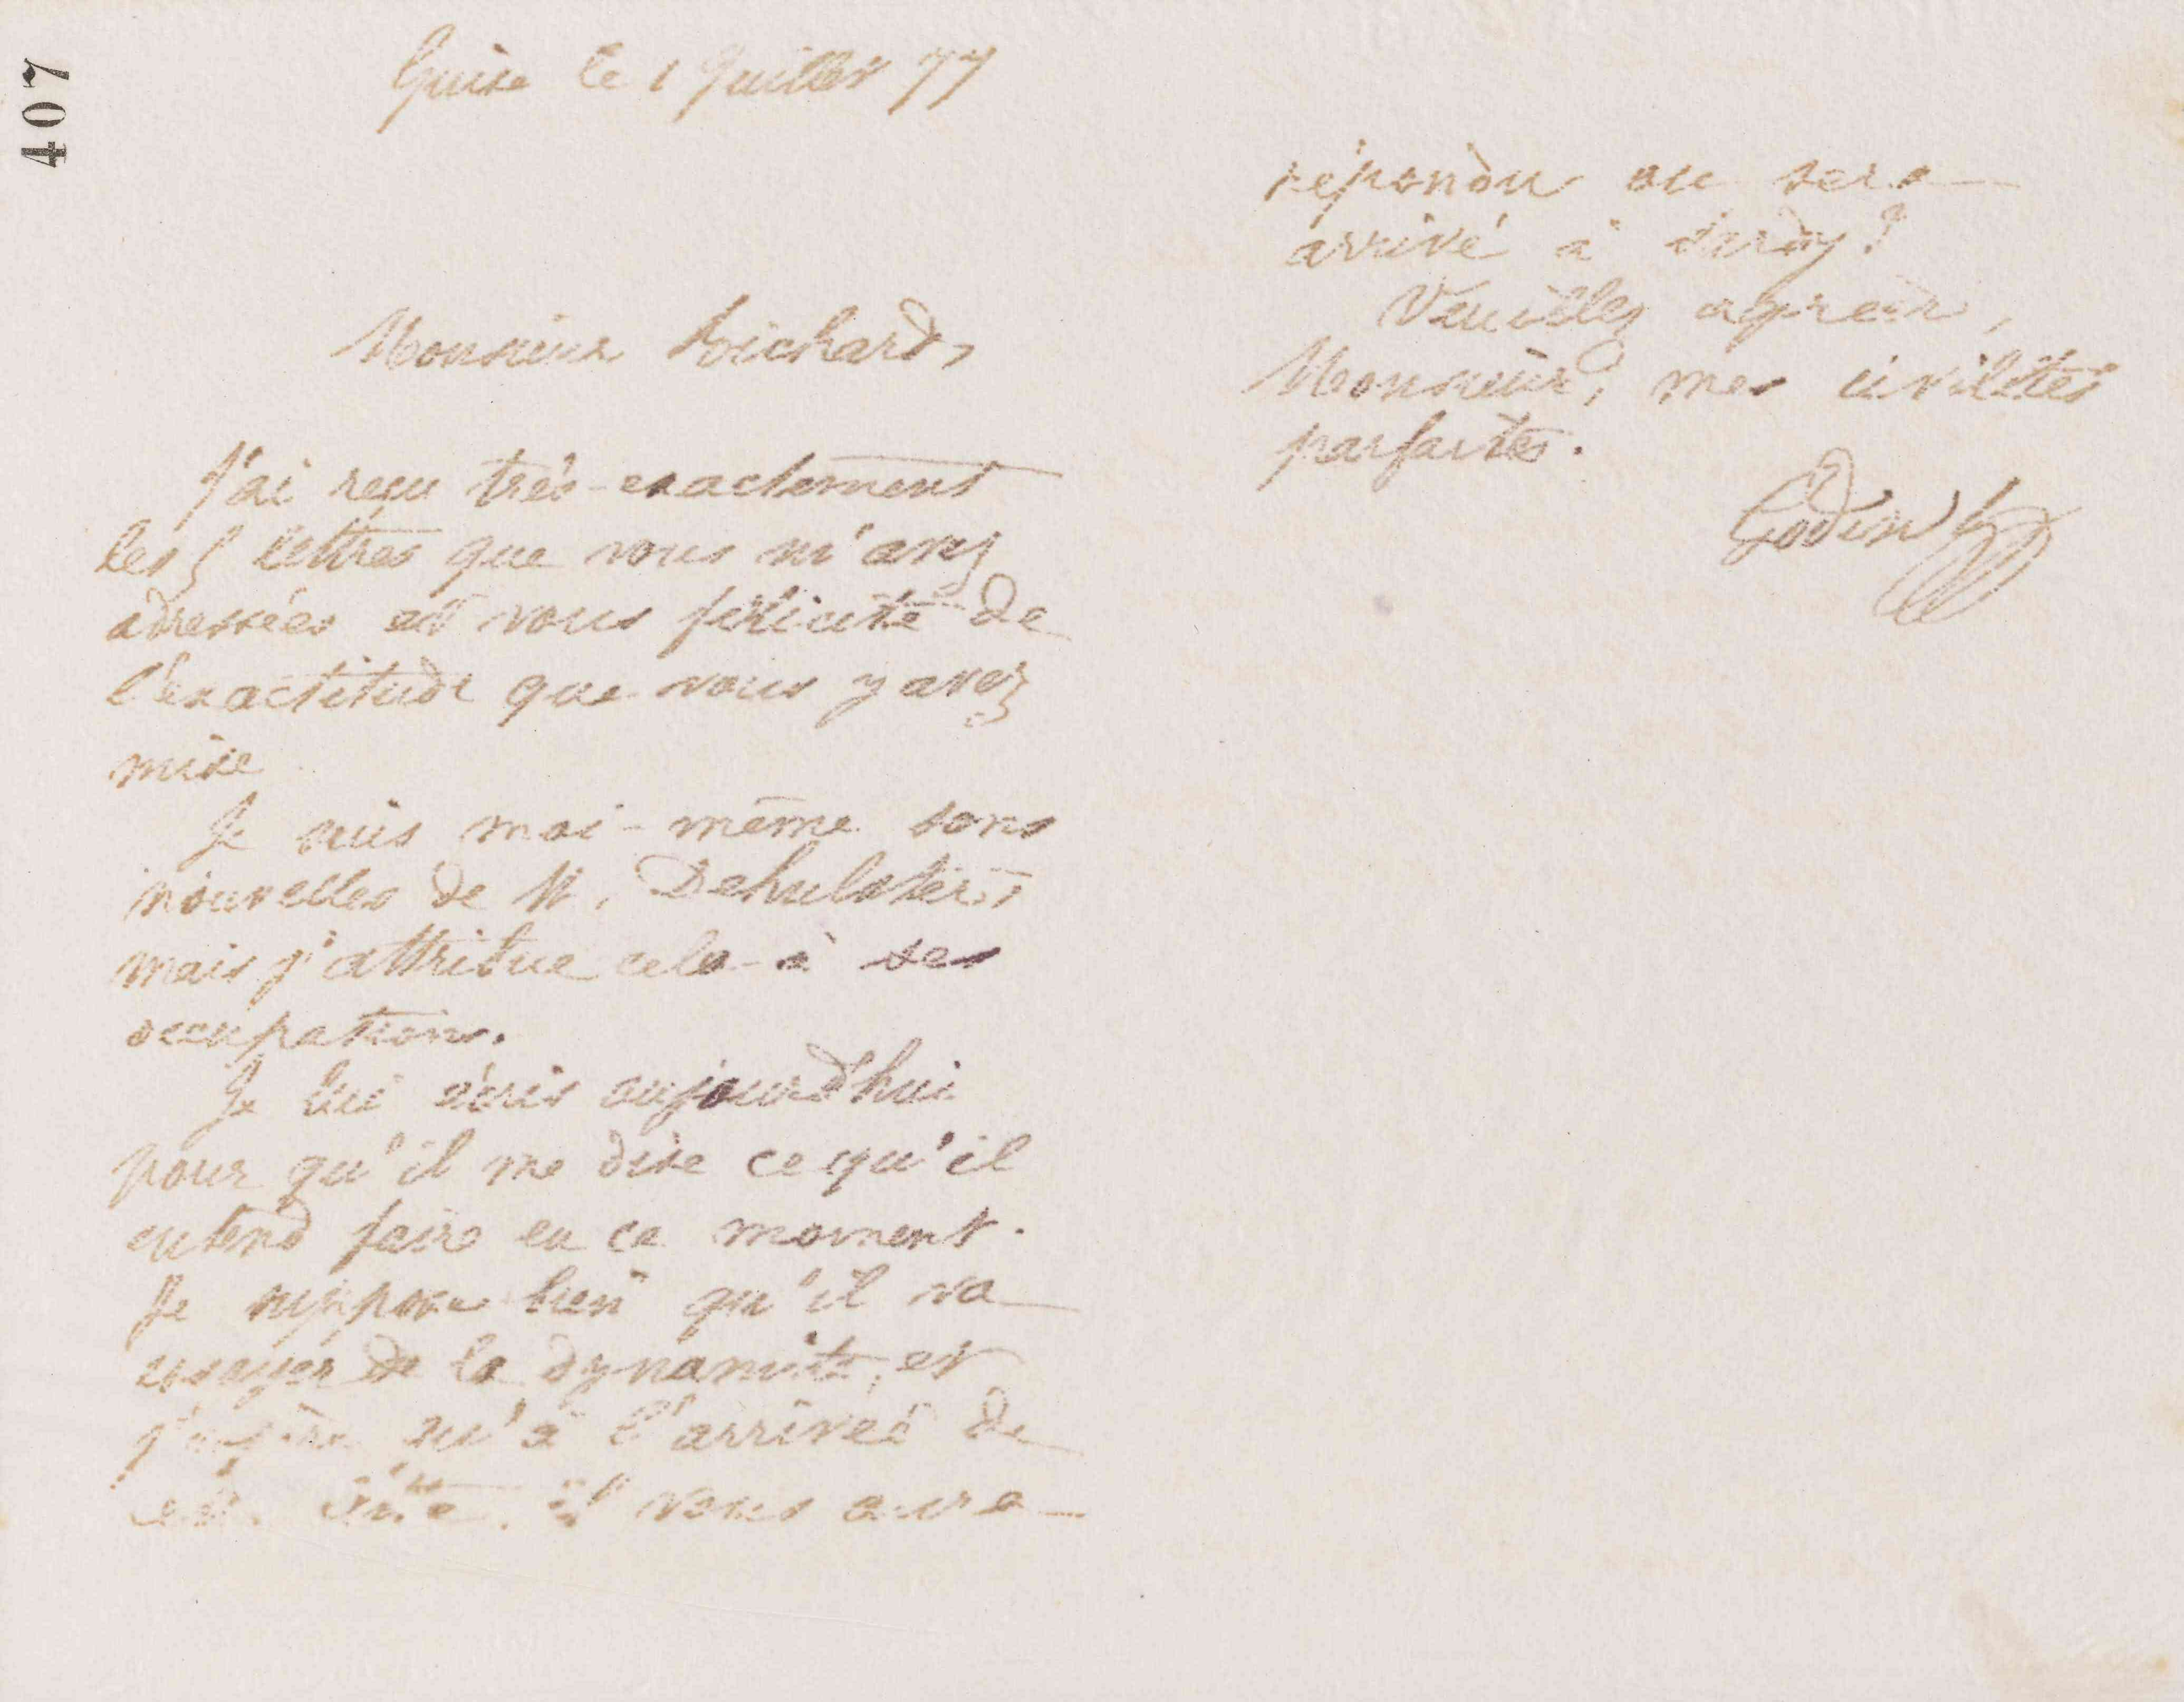 407
Guise le 1 Juillet 77
Monsieur Richard,
J'ai reçu très-exactement
les lettres que vous m'avez
adressées et vous félicite de
l'exactitude que vous y avez
mise
Je suis moi-même sans
nouvelles de M.
mais j'attribue cela à ses
occupations.
Je lui écris aujourd'hui
pour qu'il me dise ce qu'il
entend faire en ce moment.
Je suppose bien qu'il va
essayer de la dynamite, et
j'espère qu'à l'arrivée de
il vous aura
répondu ou sera
arrivé à
Veuillez agréer,
Monsieur, mes civilités
parfaites.
Godin